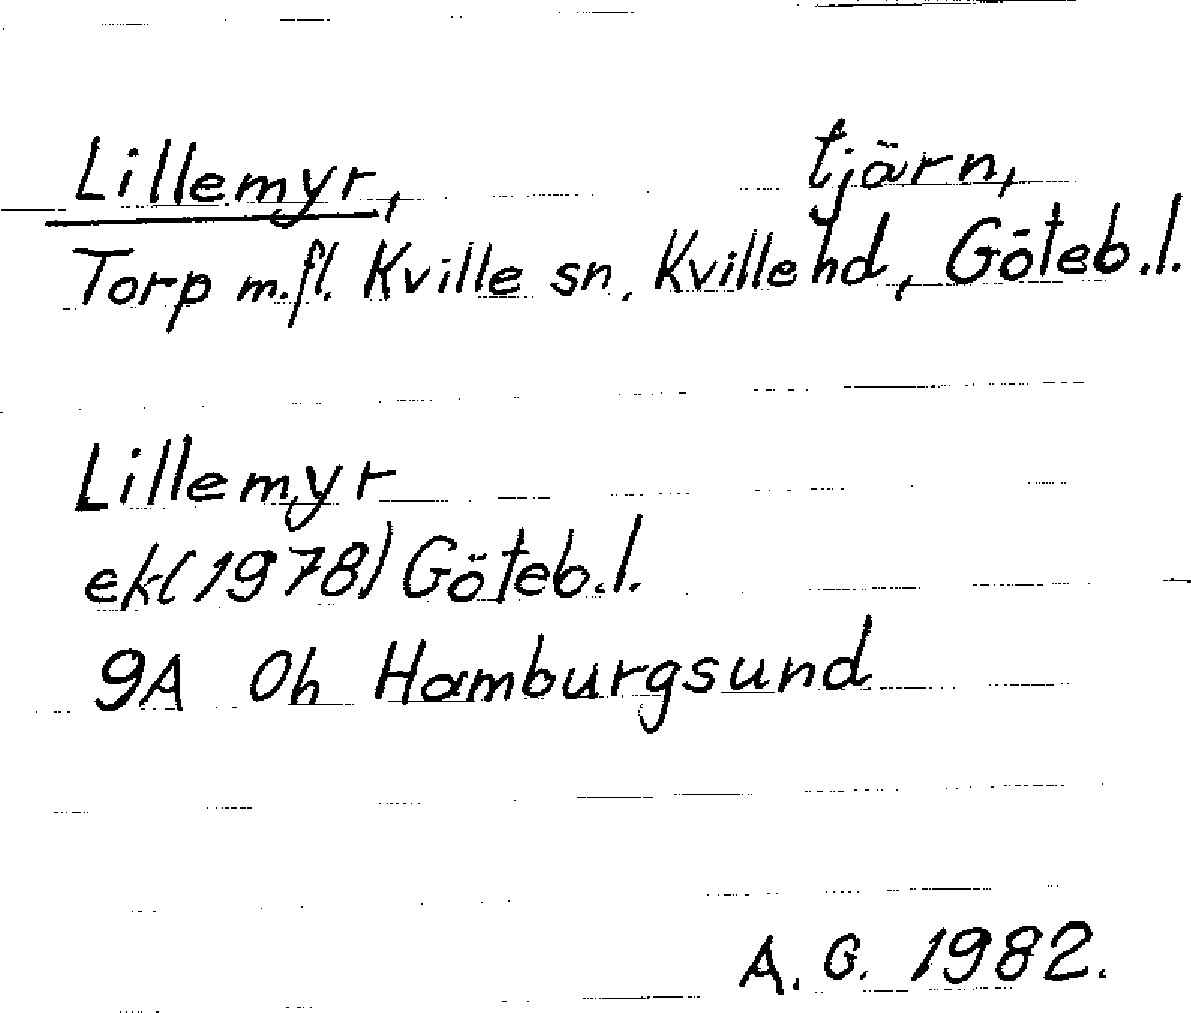 Lillemyr, tjärn,
Torp m.fl. Kville sn. Kville hd, Göteb.l.
Lillemyr
ek(1978) Göteb.l.
9A 0h Hamburgsund
A. G. 1982.